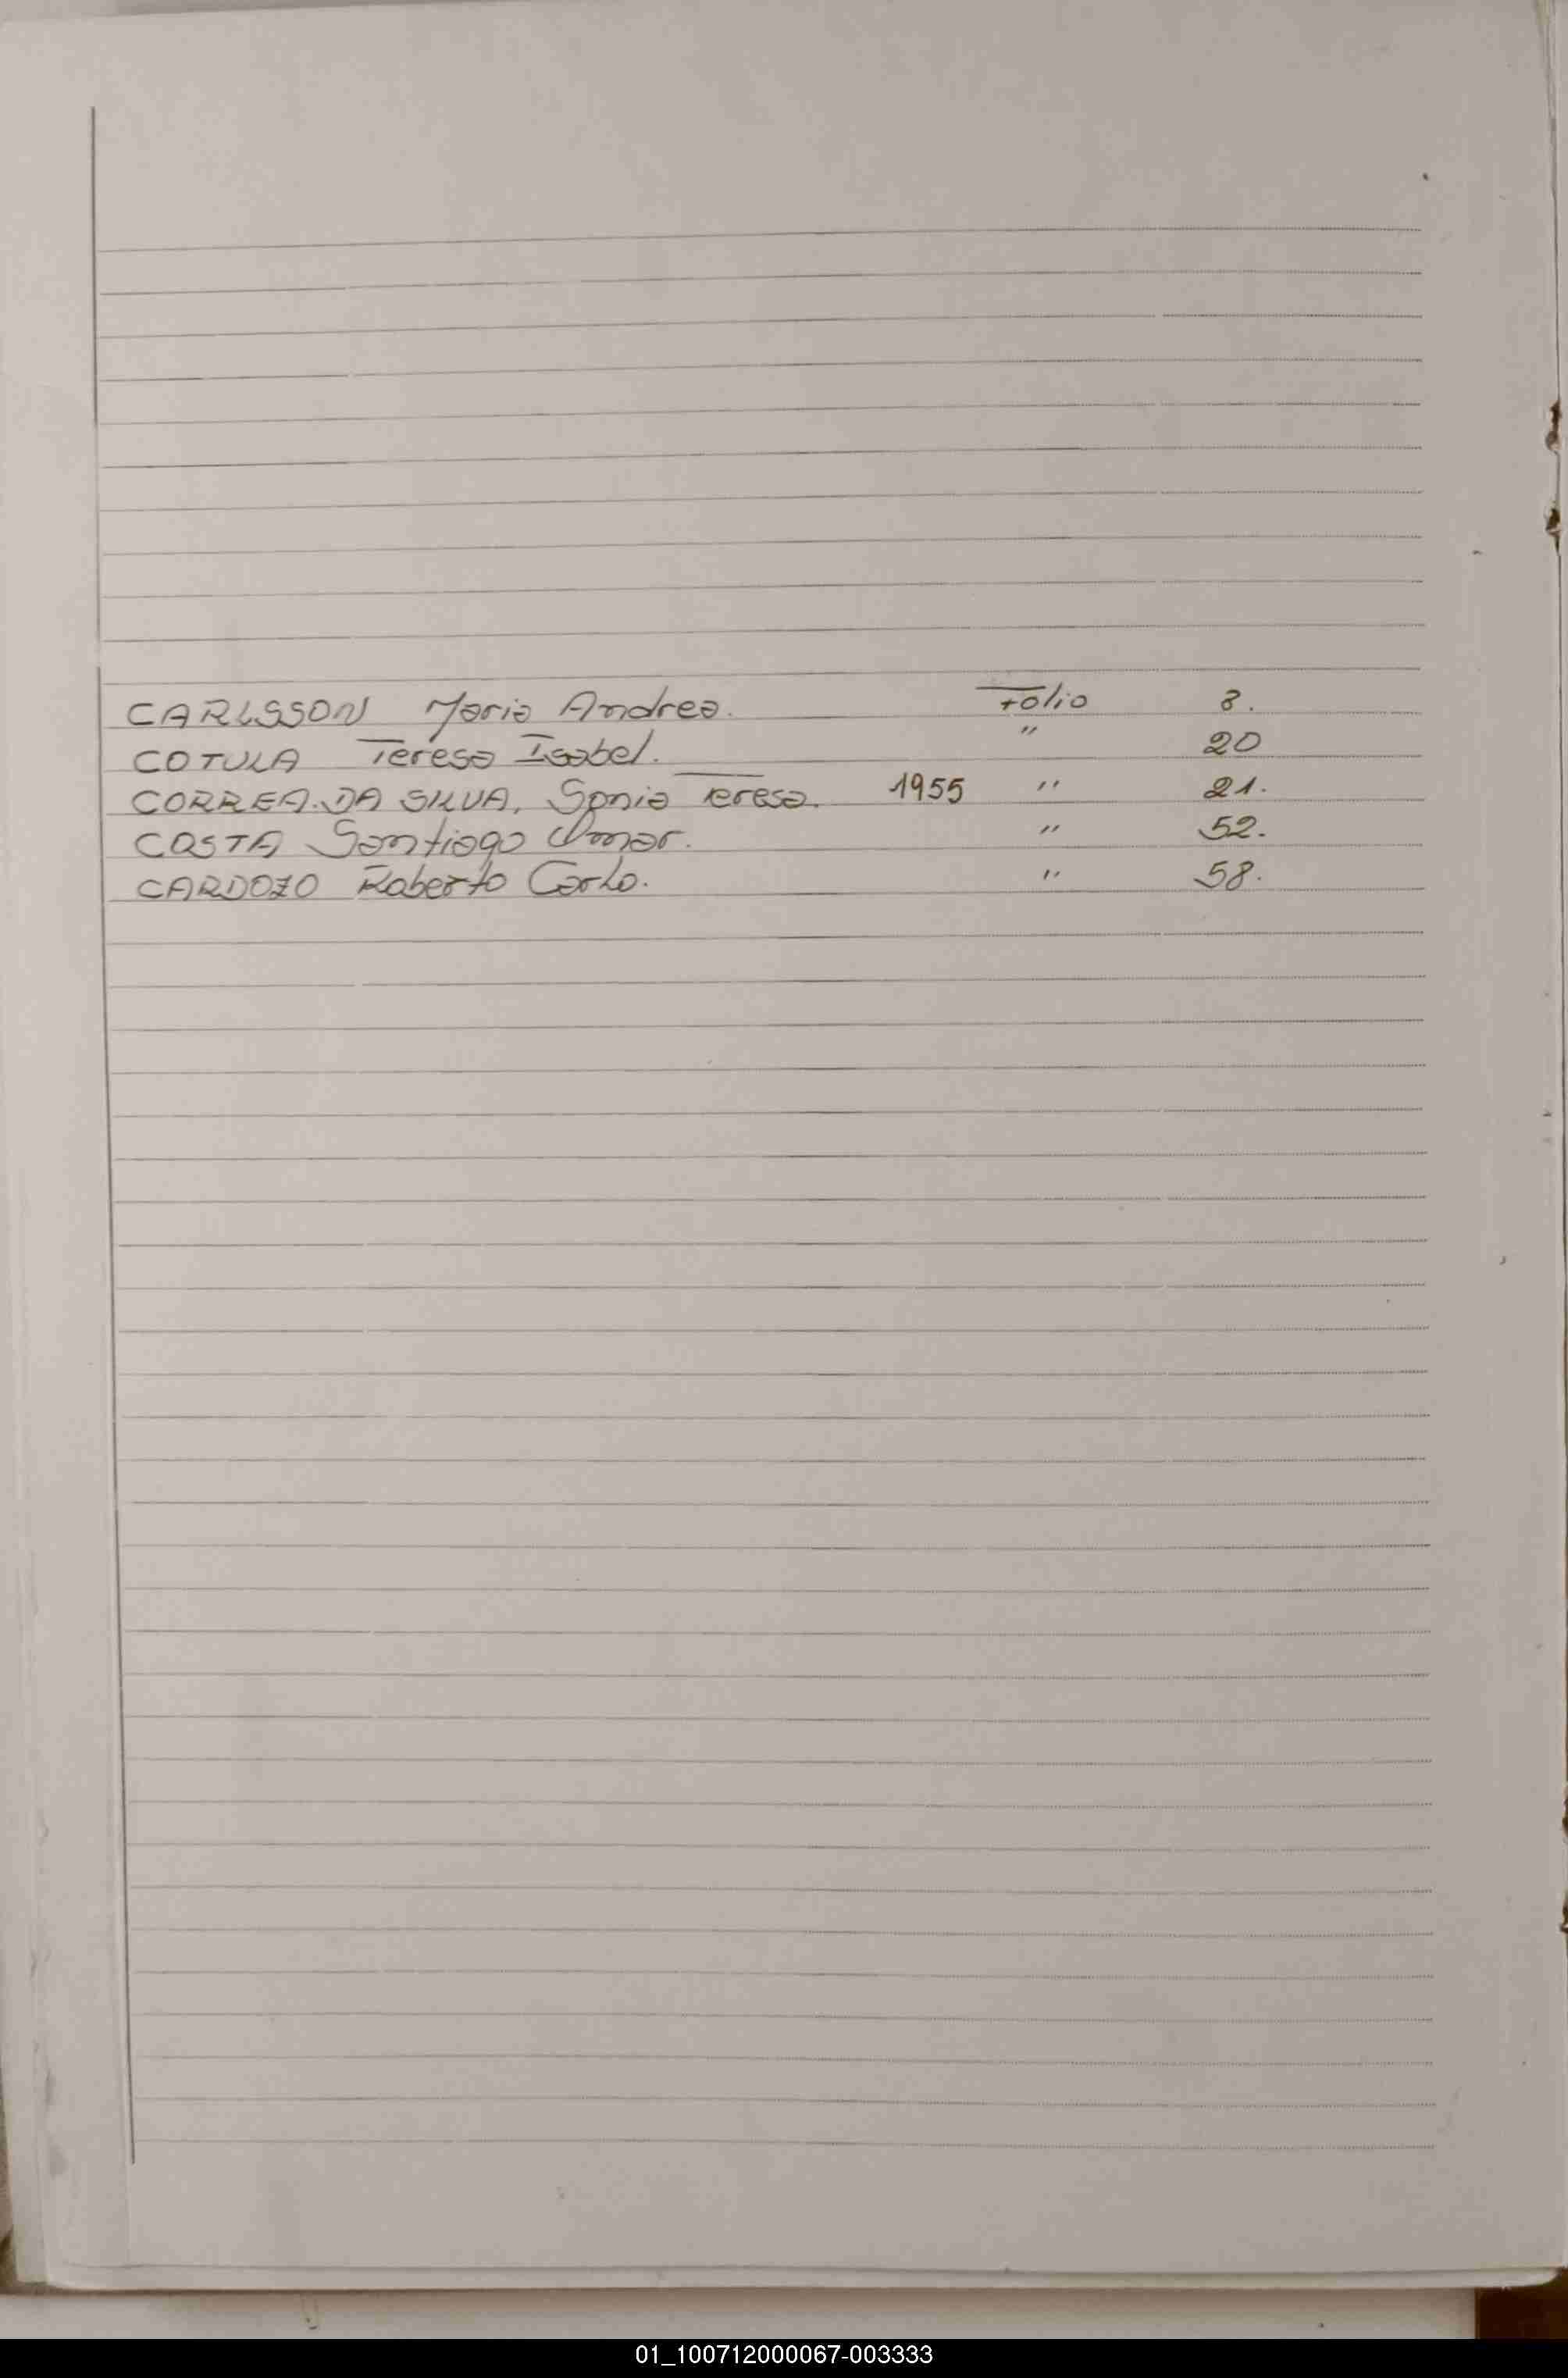 CARLSSON Maria Andrea. Folio 8.
COTULA Teresa Isabel. " 20
CORREA.DA SILVA, Sonia Teresa. 1955 " 21.
COSTA Santiago Omar. " 52.
CARDOZO Roberto Carlo. " 58.
01_100712000067-003333